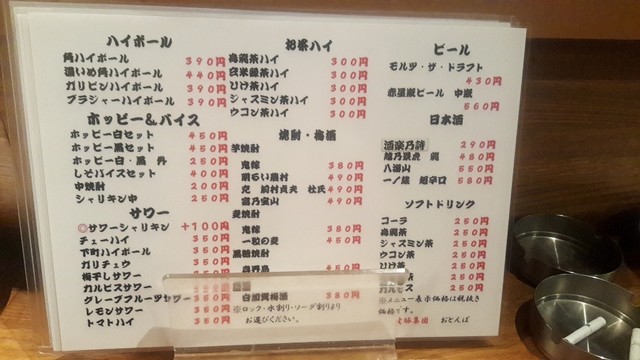 ハイボール
角ハイボール 390円
濃いめ角ハイボール 440円
ガリピンハイボール 390円
ブラジャーハイボール 390円
ホッピー＆バイス
ホッピー白セット 450円
ホッピー黒セット 450円
ホッピー白・黒 丹 250円
しそバイスセット 400円
中焼酎 200円
シャリキン中 250円
サワー
◎サワーシャリキン +100円
チューハイ 350円
下町ハイボール 350円
ガリチュウ 350円
梅干しサワー 350円
カルピスサワー 350円
グレープフルーツサワー 350円
レモンサワー 350円
トマトハイ 350円
お茶ハイ
烏龍茶ハイ 300円
玄米緑茶ハイ 300円
ジャスミン茶ハイ 300円
ウコン茶ハイ 300円
焼酎・梅酒
芋焼酎
380円
明るい農村 490円
前村貞夫 杜氏 490円
富乃宝山 490円
麦焼酎
380円
一粒の麦 450円
黒糖焼酎
450円
白加賀梅酒 380円
※ロック・水割り・ソーダ割りより
お選びください。
ビール
モルツ・ザ・ドラフト
430円
赤星瓶ビール 中瓶
560円
日本酒
酒楽乃詩 290円
越乃景虎 龍 480円
八海山 550円
一ノ蔵 超辛口 580円
ソフトドリンク
コーラ 250円
烏龍茶 250円
ジャスミン茶 250円
ウコン茶 250円
250円
カルピス 250円
※メニュー表示価格は税抜き
価格です。
集団 おとんば